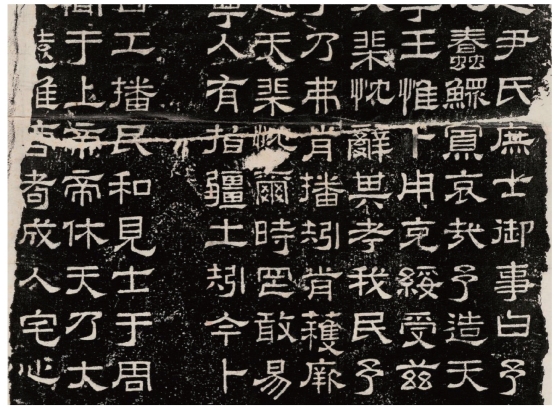 尹氏庶士御事曰予
蠢鰥寡哀哉予造天
寧王惟卜用克綏受茲
天棐忱辭其考我民予
子乃弗肯播矧肯穫厥
天棐忱爾時罔敢易
寧人有指疆土矧今卜
百工播民和見士于周
聞于上帝帝休天乃大
遠惟商耇成人宅心